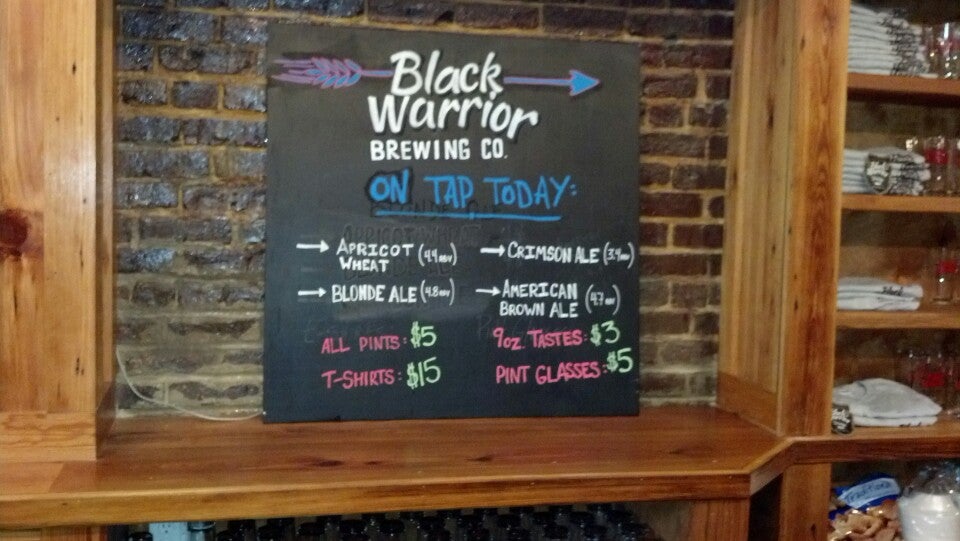 Black
Warrior
BREWING CO.
ON TAP TODAY:
→ APRICOT WHEAT (4.4 ABV)
→ CRIMSON ALE (3.9 ABV)
→ BLONDE ALE (4.8 ABV)
→ AMERICAN BROWN ALE (4.7 ABV)
ALL PINTS: $5
9OZ. TASTES: $3
T-SHIRTS: $15
PINT GLASSES: $5